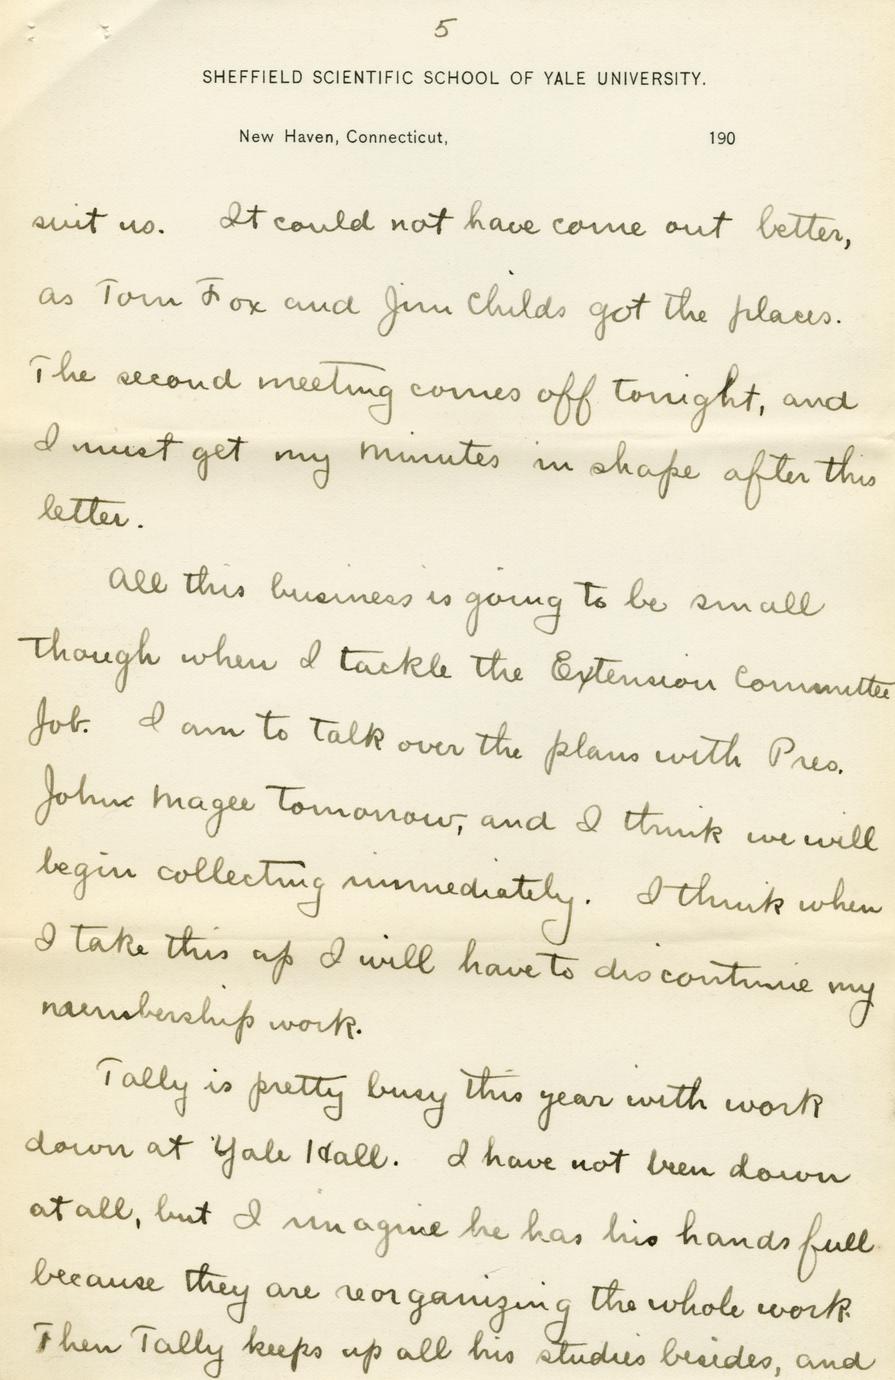 5
SHEFFIELD SCIENTIFIC SCHOOL OF YALE UNIVERSITY.
New Haven, Connecticut, 190
suit us. It could not have come out better,
as Tom Fox and Jim Childs got the places.
The second meeting comes off tonight, and
I must get my minutes in shape after this
letter.
All this business is going to be small
though when I tackle the Extension Committee
Job. I am to talk over the plans with Pres.
John Magee tomorrow, and I think we will
begin collecting immediately. I think when
I take this up I will have to discontinue my
membership work.
Tally is pretty busy this year with work
down at Yale Hall. I have not been down
at all, but I imagine he has his hands full
because they are reorganizing the whole work.
Then Tally keeps up all his studies besides, and